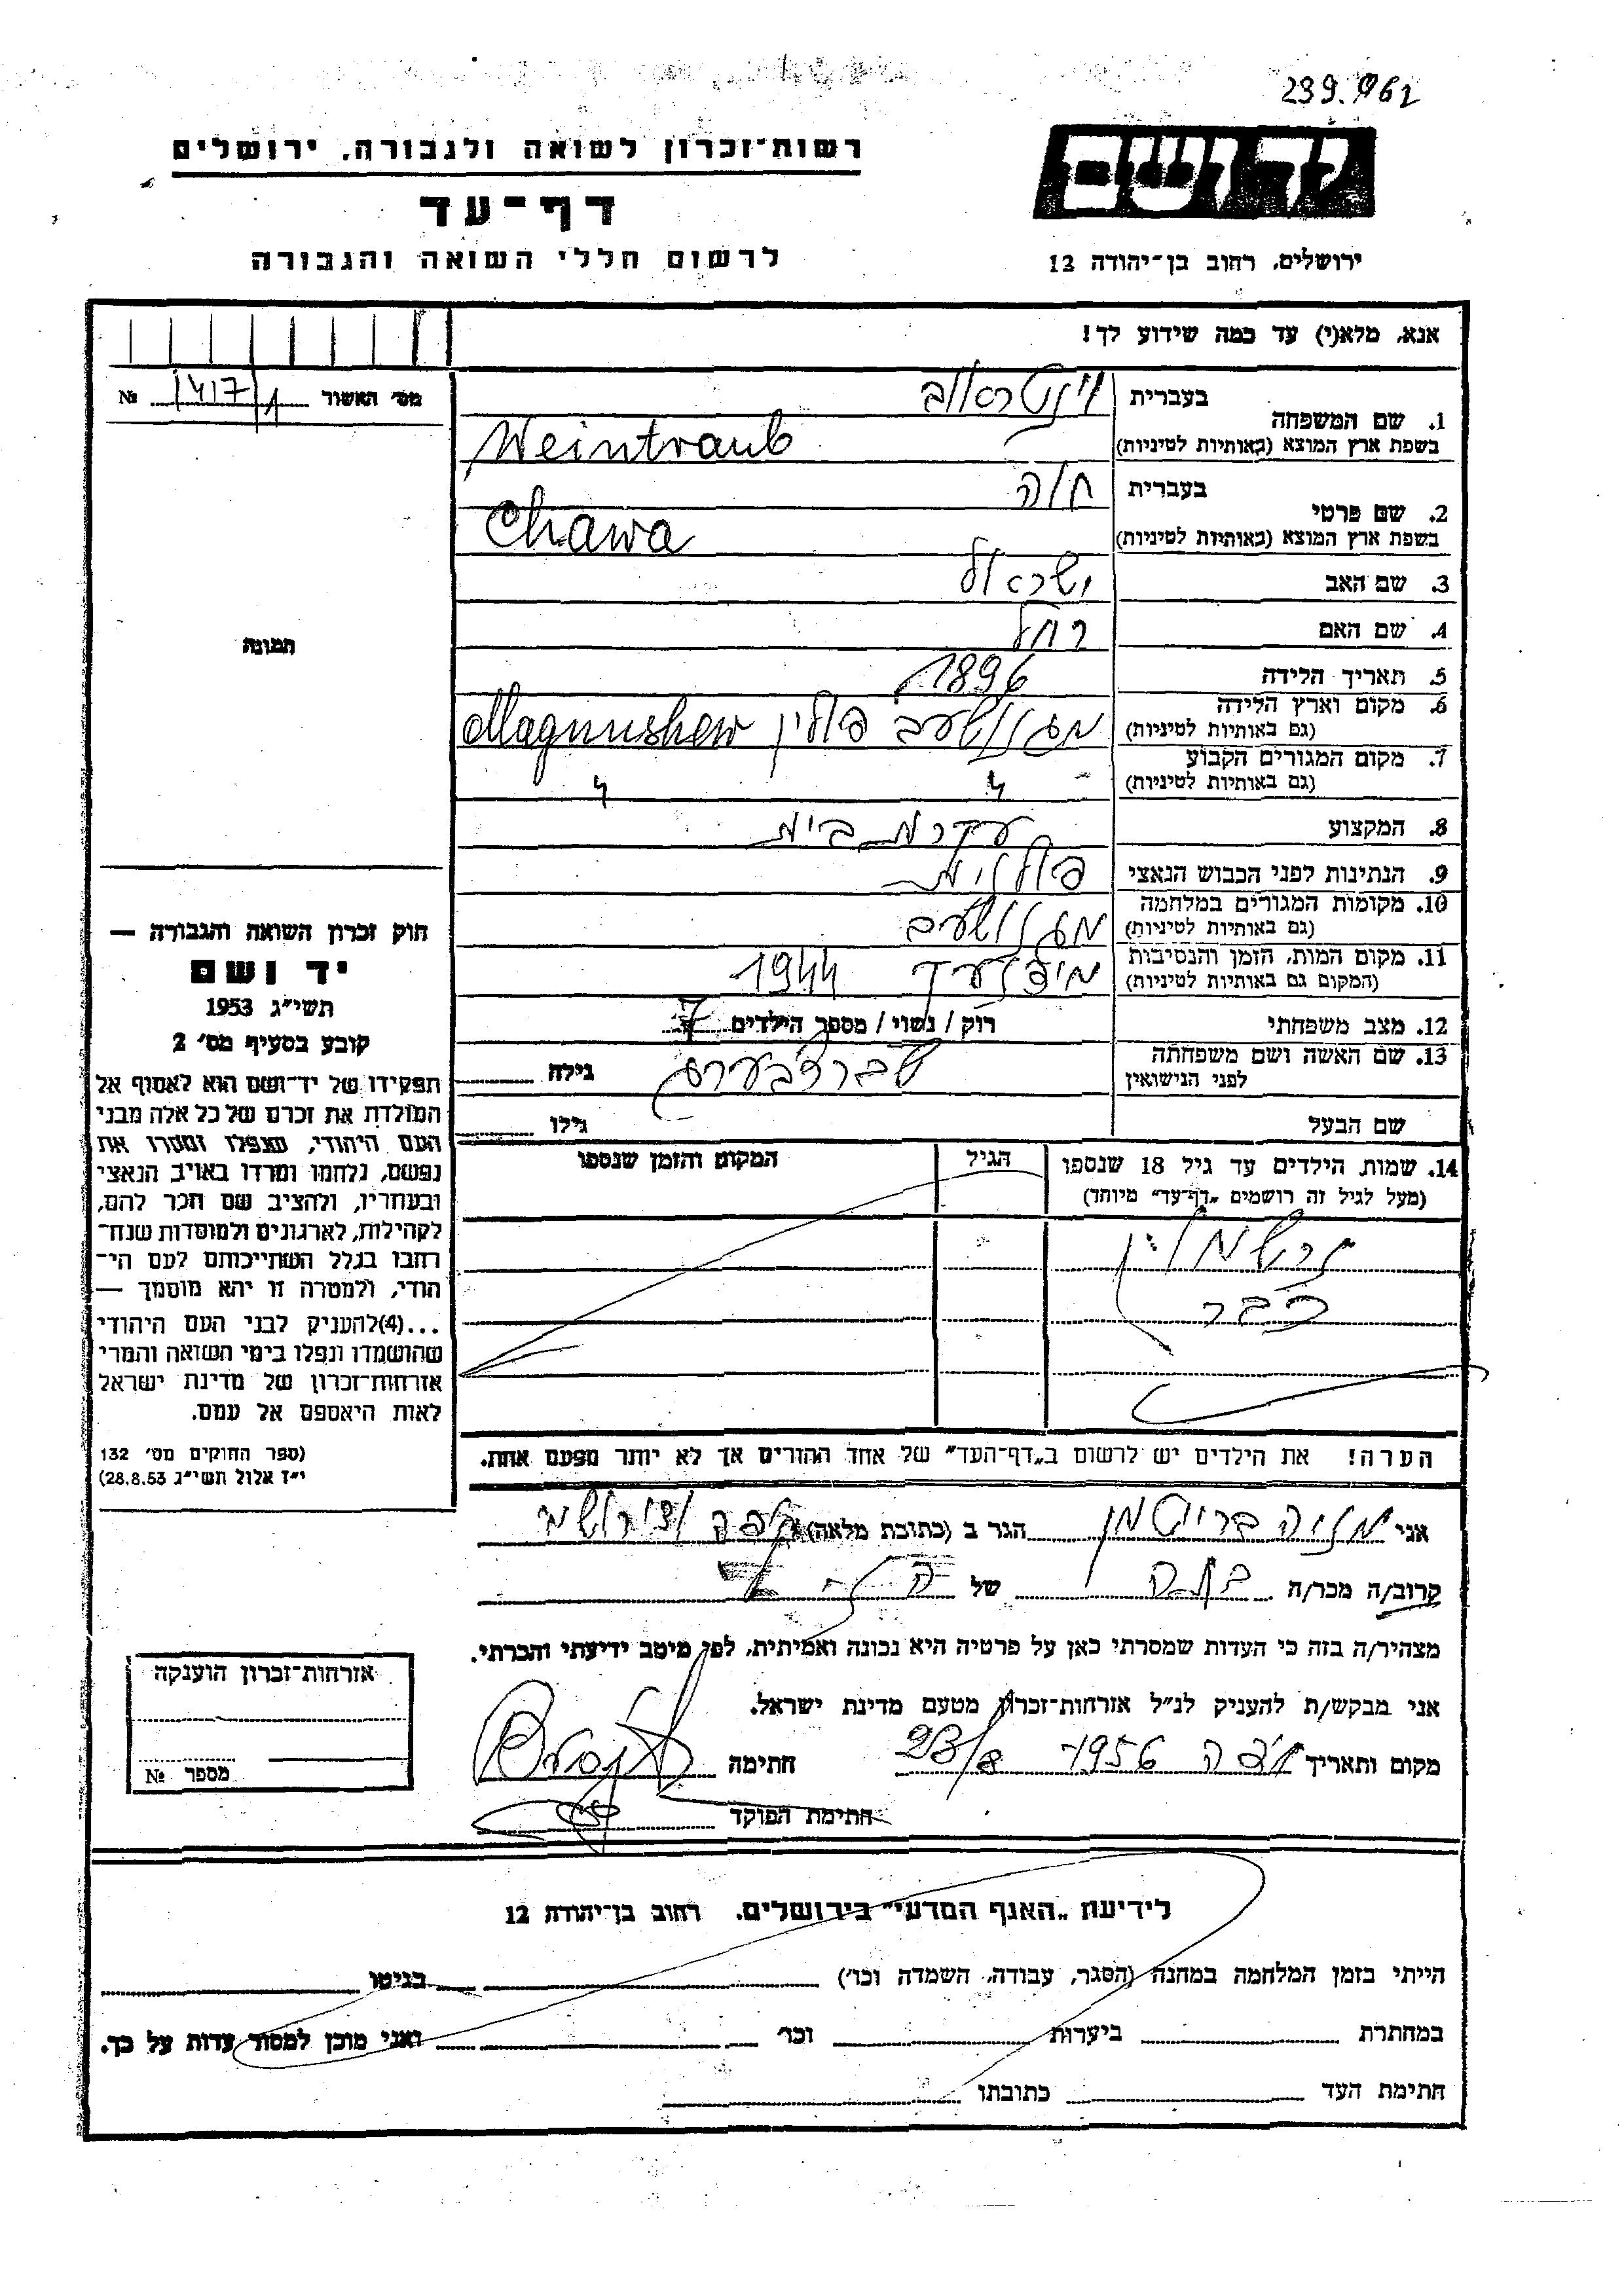 239.962
יד ושם
רשות־זכרון לשואה ולגבורה, ירושלים
דף־עד
לרשום חללי השואה והגבורה
ירושלים, רחוב בן־יהודה 12
אנא, מלא(י) עד כמה שידוע לך!
מס׳ האשור 1417/1 №
תמונה
1. שם המשפחה
בעברית וינטראוב
בשפת ארץ המוצא (באותיות לטיניות) Weintraub
2. שם פרטי
בעברית חוה
בשפת ארץ המוצא (באותיות לטיניות) Chawa
3. שם האב ישראל
4. שם האם רחל
5. תאריך הלידה 1896
6. מקום וארץ הלידה
(גם באותיות לטיניות) מגנושעב פולין Magnushew
7. מקום המגורים הקבוע
(גם באותיות לטיניות) " "
8. המקצוע עקרת בית
9. הנתינות לפני הכבוש הנאצי פולנית
10. מקומות המגורים במלחמה
(גם באותיות לטיניות) מגנושעב
11. מקום המות, הזמן והנסיבות
(המקום גם באותיות לטיניות) 1944
12. מצב משפחתי רוק / נשוי / מספר הילדים 7
13. שם האשה ושם משפחתה
לפני הנישואין שברצבערג גילה
שם הבעל גילו
14. שמות הילדים עד גיל 18 שנספו
(מעל לגיל זה רושמים „דף־עד" מיוחד)
הגיל
המקום והזמן שנספו
נרשמו
כבר
הערה! את הילדים יש לרשום ב„דף־העד" של אחד ההורים אך לא יותר מפעם אחת.
חוק זכרון השואה והגבורה —
יד ושם
תשי״ג 1953
קובע בסעיף מס׳ 2
תפקידו של יד־ושם הוא לאסוף אל
המולדת את זכרם של כל אלה מבני
העם היהודי, שנפלו ומסרו את
נפשם, נלחמו ומרדו באויב הנאצי
ובעוזריו, ולהציב שם וזכר להם,
לקהילות, לארגונים ולמוסדות שנח־
רבו בגלל השתייכותם לעם הי־
הודי, ולמטרה זו יהא מוסמך —
...(4)להעניק לבני העם היהודי
שהושמדו ונפלו בימי השואה והמרי
אזרחות־זכרון של מדינת ישראל
לאות היאספם אל עמם.
(ספר החוקים מס׳ 132
י״ז אלול תשי״ג 28.8.53)
אני מניה ברויטמן הגר ב (כתובת מלאה)
קרוב/ה מכר/ה בתה של הנ״ל
מצהיר/ה בזה כי העדות שמסרתי כאן על פרטיה היא נכונה ואמיתית, לפי מיטב ידיעתי והכרתי.
אני מבקש/ת להעניק לנ״ל אזרחות־זכרון מטעם מדינת ישראל.
מקום ותאריך 1956 23/8 חתימה
חתימת הפוקד
אזרחות־זכרון הוענקה
מספר №
לידיעת „האגף המדעי" בירושלים, רחוב בן־יהודה 12
הייתי בזמן המלחמה במחנה (הסגר, עבודה, השמדה וכו׳) בגיטו
במחתרת ביערות וכו׳ ואני מוכן למסור עדות על כך.
חתימת העד כתובתו